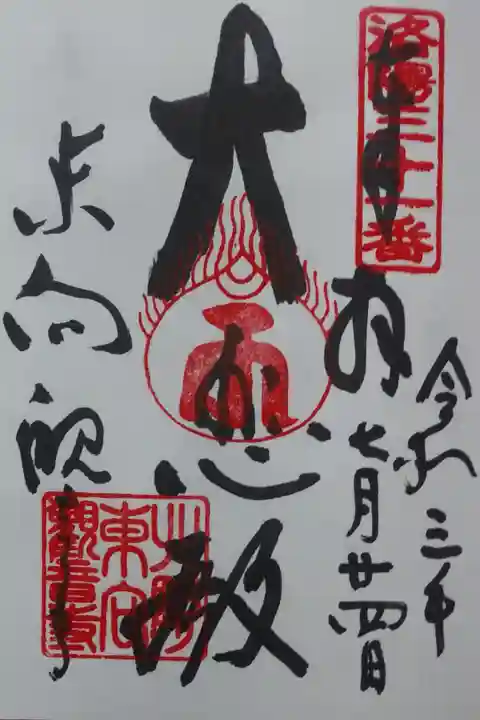 洛陽三十一番
奉拝
令和三年
七月廿四日
大悲殿
東向観音寺